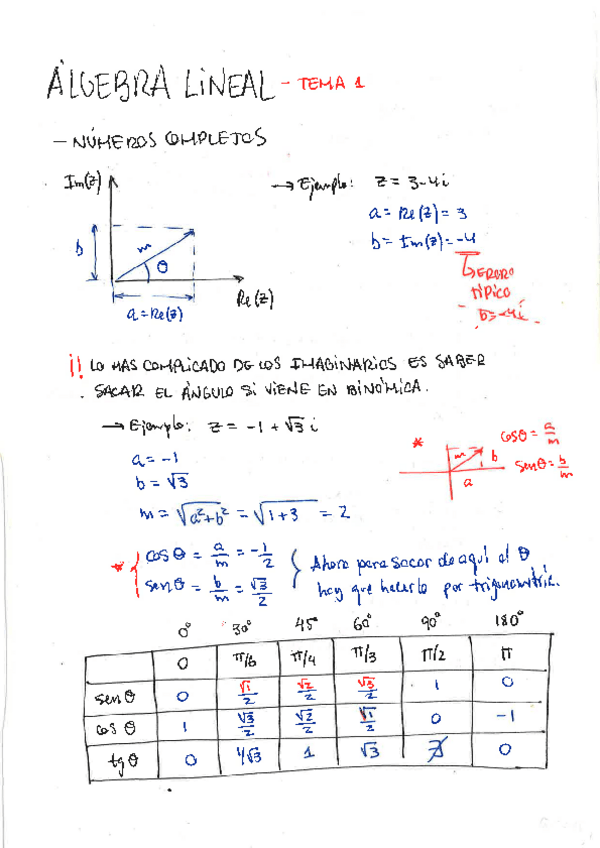 ÁLGEBRA LINEAL - TEMA 1
- NÚMEROS COMPLEJOS
Im(z)
b
m
θ
a = Re(z)
Re(z)
→ Ejemplo: z = 3-4i
a = Re(z) = 3
b = Im(z) = -4
ERROR
TÍPICO
b = -4i
¡! LO MAS COMPLICADO DE LOS IMAGINARIOS ES SABER
SACAR EL ÁNGULO SI VIENE EN BINÓMICA.
→ Ejemplo: z = -1 + √3 i
a = -1
b = √3
m = √a²+b² = √1+3 = 2
*
m
b
a
cosθ = a/m
senθ = b/m
* { cos θ = a/m = -1/2
sen θ = b/m = √3/2
Ahora para sacar de aquí el θ
hay que hacerlo por trigonometría.
0° 30° 45° 60° 90° 180°
0 π/6 π/4 π/3 π/2 π
sen θ 0 √1/2 √2/2 √3/2 1 0
cos θ 1 √3/2 √2/2 √1/2 0 -1
tg θ 0 1/√3 1 √3 ∄ 0